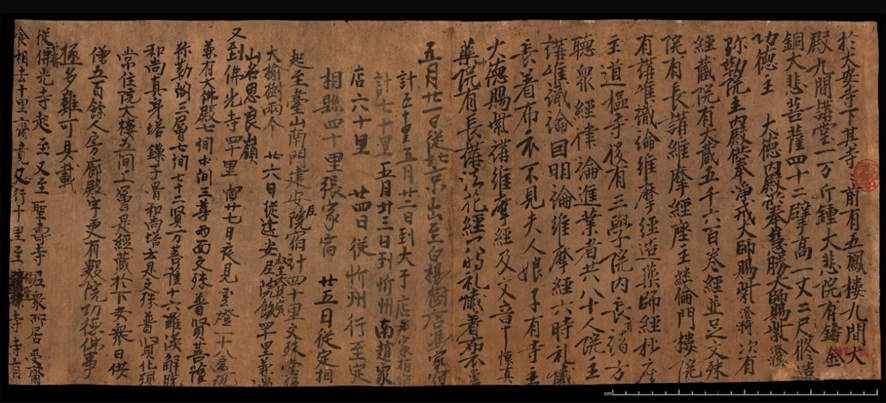 於大安寺下其寺前有五鳳樓九間大
殿九間講堂一万斤鍾大悲院有鑄金
銅大悲菩薩四十二臂高一丈二尺修造
功德主 大德內殿供奉慧勝大師賜紫
弥勒院主內殿供奉淨戒大師賜紫澄漪次有
經藏院有大藏五千六百卷經並足文殊
院有長講維摩經座主繼倫門樓院
有講唯識論維摩經造藥師經抄座
主道楹寺後有三學院內長請方
聽眾經律論進業者共八十人院主
講唯識論因明論維摩經六時礼懺
長着布衣不見夫人娘子有寺主
大德賜紫講維摩經及文章 懷真
藥院有長講法花經六時礼懺着布衣
五月廿一日從北京出至白楊樹店 家宿
計五十里五月廿二日到大于店
計七十里五月廿三日到忻州南趙家
店六十里 廿四日從忻州行至定
相縣四十里張家宿 廿五日從定相
起至臺山南門建安尼院宿計四十里文殊堂後
大榆樹兩个 廿六日從建安尼院 四十里
山名思良嶺
又到佛光寺四十里 宿廿七日夜見聖燈一十八遍現
兼有大佛殿七間中間三尊兩面文殊普賢菩薩
弥勒閣三層七間七十二賢万菩薩十六羅漢解脫
和尚真身塔鎖子骨和尚塔云是文殊普賢化現
常住院大樓五間上層是經藏於下安眾日供
僧五百餘人房廊殿宇更有數院功德佛事
極多難可具載
從佛光寺起至又至聖壽寺 尼眾所居受齋
食相去十里齋竟又行十里至 寺 寺有
cm